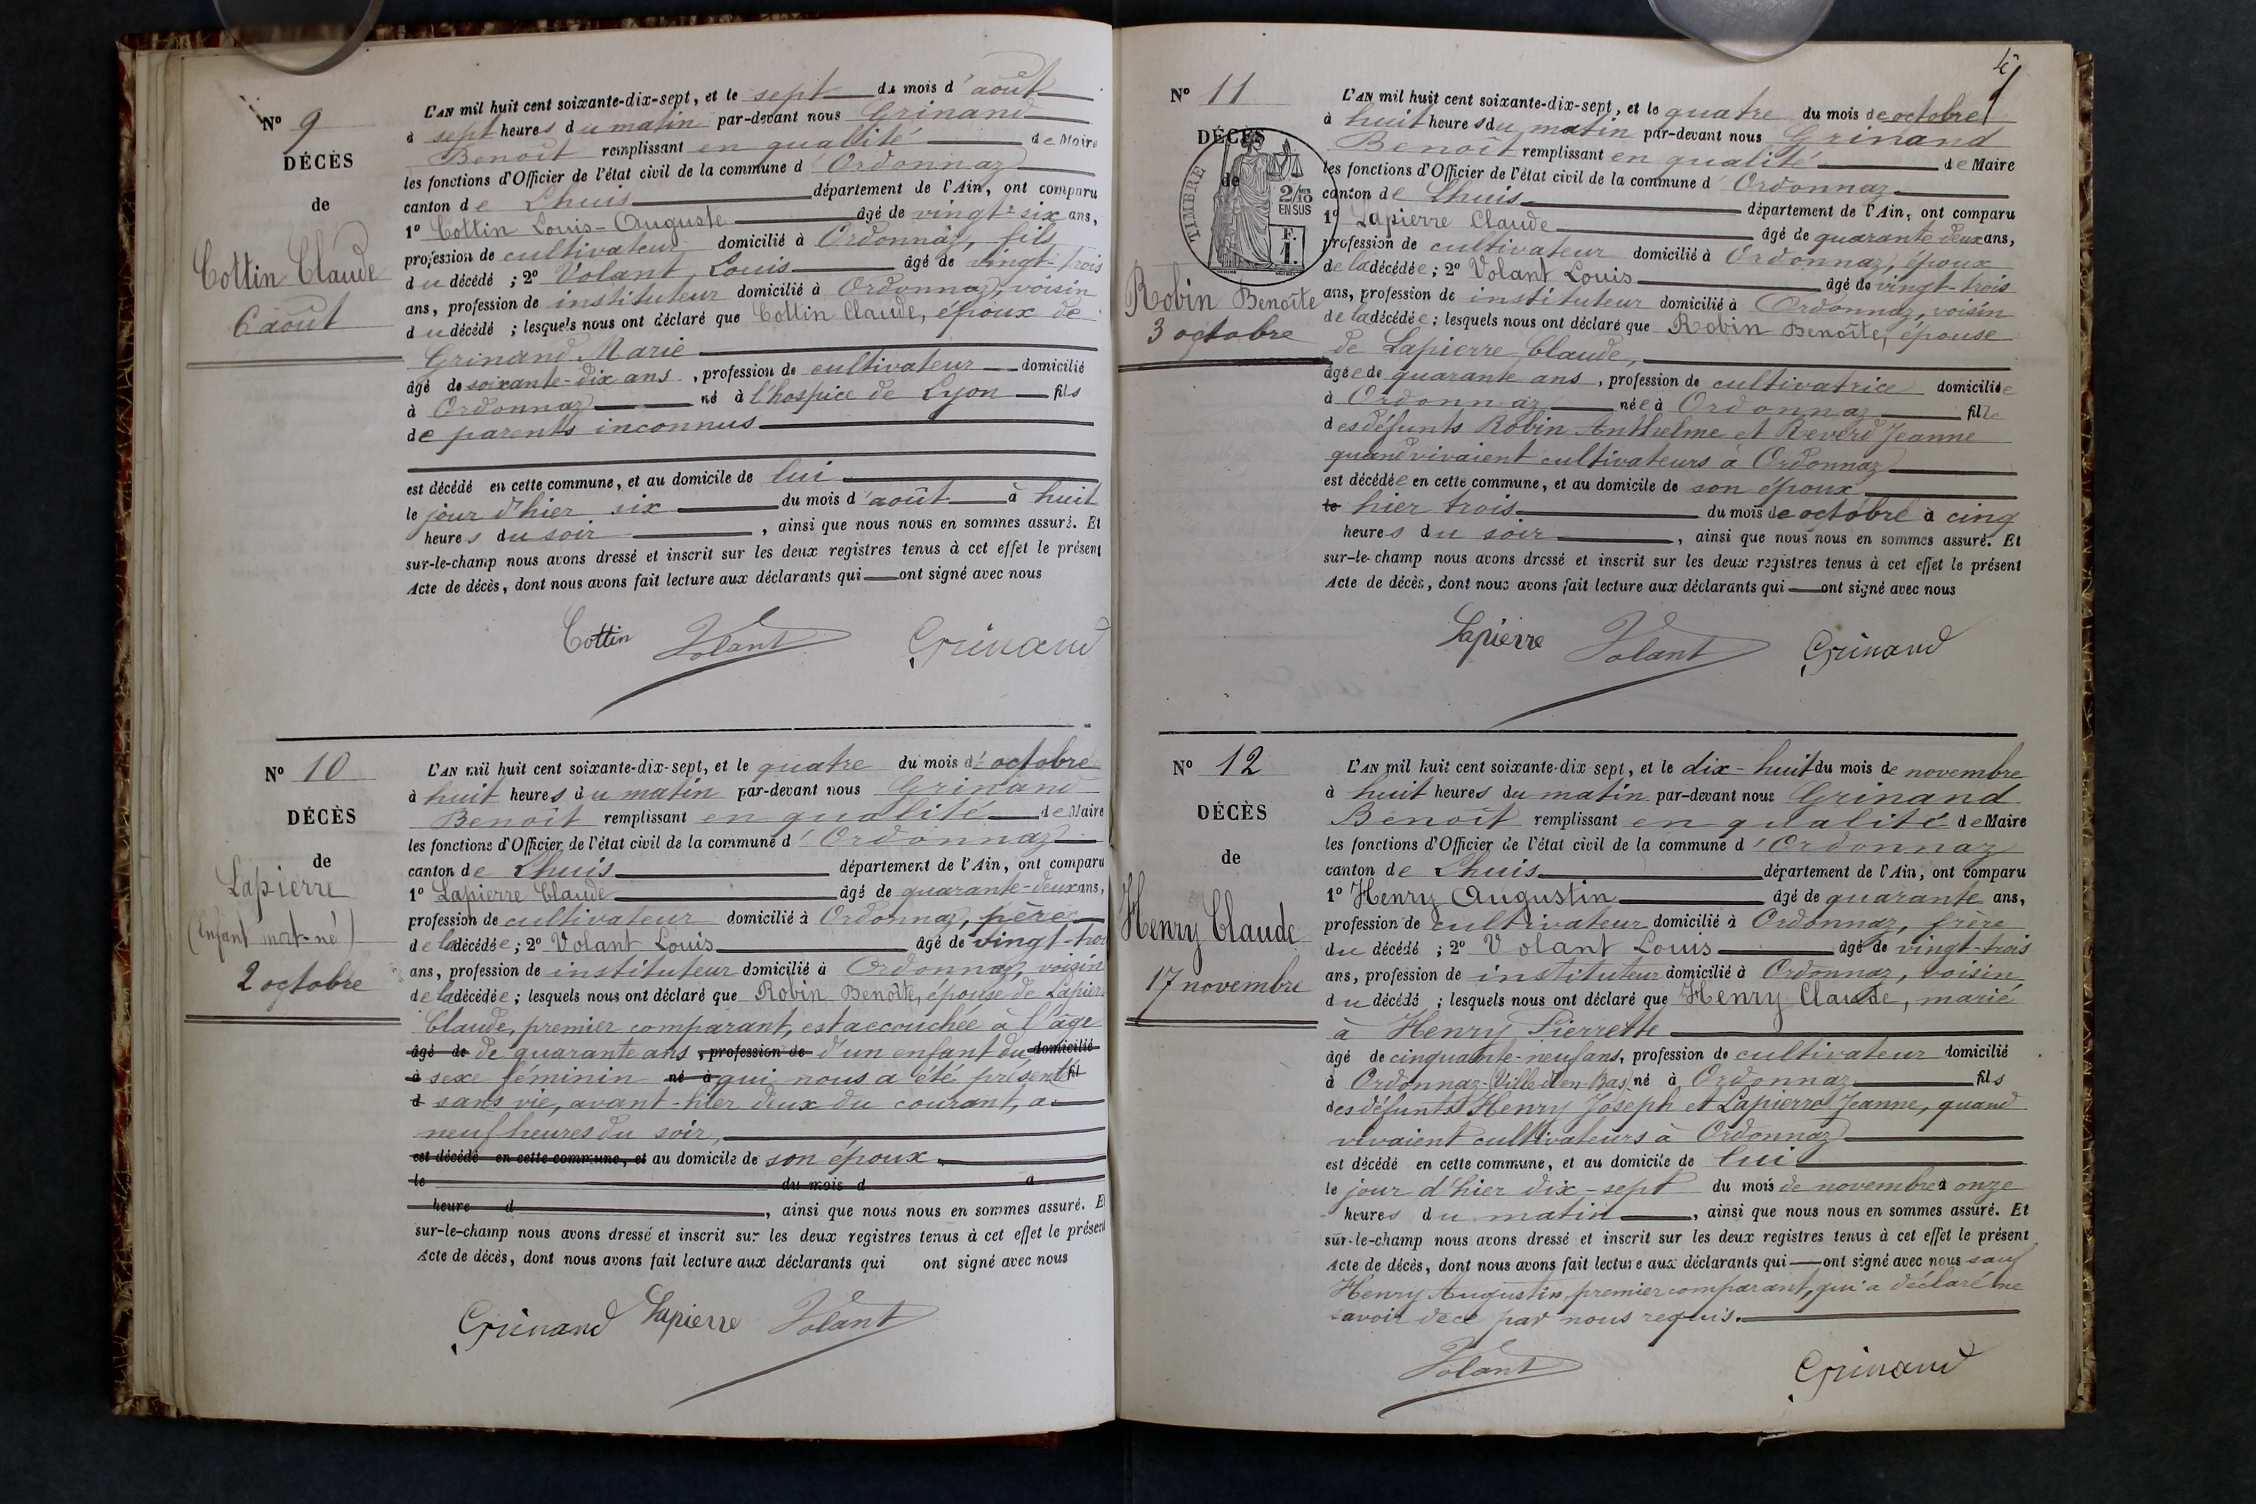 N° 9
DÉCÈS
de
Cottin Claude
6 août
L'AN mil huit cent soixante-dix-sept, et le sept du mois d'août
à sept heures du matin par-devant nous Grinand
Benoît remplissant en qualité de Maire
les fonctions d'Officier de l'état civil de la commune d'Ordonnaz
canton de Lhuis département de l'Ain, ont comparu
1° Cottin Louis-Auguste âgé de vingt-six ans,
profession de cultivateur domicilié à Ordonnaz, fils
du décédé ; 2° Volant Louis âgé de vingt-trois
ans, profession de instituteur domicilié à Ordonnaz, voisin
du décédé ; lesquels nous ont déclaré que Cottin Claude, époux de
Grinand Marie
âgé de soixante-dix ans, profession de cultivateur domicilié
à Ordonnaz né à l'hospice de Lyon fils
de parents inconnus
est décédé en cette commune, et au domicile de lui
le jour d'hier six du mois d'août à huit
heures du soir, ainsi que nous nous en sommes assuré. Et
sur-le-champ nous avons dressé et inscrit sur les deux registres tenus à cet effet le présent
Acte de décès, dont nous avons fait lecture aux déclarants qui ont signé avec nous
Cottin Volant Grinand
N° 10
DÉCÈS
de
Lapierre
(enfant mort-né)
2 octobre
L'AN mil huit cent soixante-dix-sept, et le quatre du mois d'octobre
à huit heures du matin par-devant nous Grinand
Benoît remplissant en qualité de Maire
les fonctions d'Officier de l'état civil de la commune d'Ordonnaz
canton de Lhuis département de l'Ain, ont comparu
1° Lapierre Claude âgé de quarante-deux ans,
profession de cultivateur domicilié à Ordonnaz, père
de la décédée ; 2° Volant Louis âgé de vingt-troi
ans, profession de instituteur domicilié à Ordonnaz, voisin
de la décédée ; lesquels nous ont déclaré que Robin Benoîte, épouse de Lapier
Claude, premier comparant, est accouchée à l'âge
âgé de de quarante ans, profession de d'un enfant du domicilié
à sexe féminin né à qui nous a été présenté fil
d sans vie, avant-hier deux du courant, à
neuf heures du soir,
est décédé en cette commune, et au domicile de son époux.
le du mois d à
heure d , ainsi que nous nous en sommes assuré. Et
sur-le-champ nous avons dressé et inscrit sur les deux registres tenus à cet effet le présent
Acte de décès, dont nous avons fait lecture aux déclarants qui ont signé avec nous
Grinand Lapierre Volant
4
N° 11
DÉCÈS
de
TIMBRE
2/10 EN SUS
F. 1.
Robin Benoîte
3 octobre
L'AN mil huit cent soixante-dix-sept, et le quatre du mois de octobre
à huit heures du matin par-devant nous Grinand
Benoît remplissant en qualité de Maire
les fonctions d'Officier de l'état civil de la commune d'Ordonnaz
canton de Lhuis département de l'Ain, ont comparu
1° Lapierre Claude âgé de quarante deux ans,
profession de cultivateur domicilié à Ordonnaz, époux
de la décédée ; 2° Volant Louis âgé de vingt-trois
ans, profession de instituteur domicilié à Ordonnaz, voisin
de la décédée ; lesquels nous ont déclaré que Robin Benoîte, épouse
de Lapierre Claude,
âgée de quarante ans, profession de cultivatrice domiciliée
à Ordonnaz née à Ordonnaz fille
des défunts Robin Anthelme et Reverd Jeanne
quand vivaient cultivateurs à Ordonnaz
est décédée en cette commune, et au domicile de son époux
le hier trois du mois de octobre à cinq
heures du soir, ainsi que nous nous en sommes assuré. Et
sur-le-champ nous avons dressé et inscrit sur les deux registres tenus à cet effet le présent
Acte de décès, dont nous avons fait lecture aux déclarants qui ont signé avec nous
Lapierre Volant Grinand
N° 12
DÉCÈS
de
Henry Claude
17 novembre
L'AN mil huit cent soixante-dix sept, et le dix-huit du mois de novembre
à huit heures du matin par-devant nous Grinand
Benoît remplissant en qualité de Maire
les fonctions d'Officier de l'état civil de la commune d'Ordonnaz
canton de Lhuis département de l'Ain, ont comparu
1° Henry Augustin âgé de quarante ans,
profession de cultivateur domicilié à Ordonnaz, frère
du décédé ; 2° Volant Louis âgé de vingt-trois
ans, profession de instituteur domicilié à Ordonnaz, voisin
du décédé ; lesquels nous ont déclaré que Henry Claude, marié
à Henry Pierrette
âgé de cinquante-neuf ans, profession de cultivateur domicilié
à Ordonnaz-(Ville d'en Bas) né à Ordonnaz fils
des défunts Henry Joseph et Lapierre Jeanne, quand
vivaient cultivateurs à Ordonnaz
est décédé en cette commune, et au domicile de lui
le jour d'hier dix-sept du mois de novembre à onze
heures du matin, ainsi que nous nous en sommes assuré. Et
sur-le-champ nous avons dressé et inscrit sur les deux registres tenus à cet effet le présent
Acte de décès, dont nous avons fait lecture aux déclarants qui ont signé avec nous sauf
Henry Augustin, premier comparant, qui a déclaré ne
savoir de ce par nous requis.
Volant Grinand